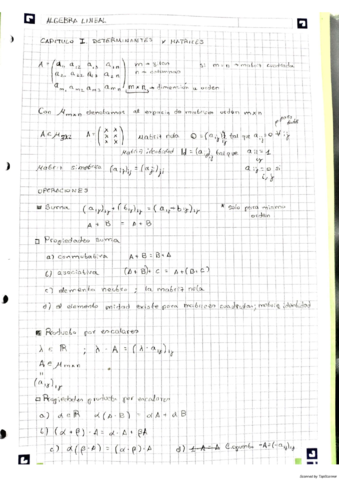 ALGEBRA LINEAL
CAPITULO I DETERMINANTES Y MATRICES
A = (a11 a12 a13 a1n m = filas si m = n → matriz cuadrada
a21 a22 a23 a2n n = columnas
am1 am2 am3 amn) m×n → dimensión u orden
Con μm×n denotamos el espacio de matrices orden m×n
A ∈ μ3×2 A = (x x x x x x) Matriz nula O = (aij)ij tal que aij = 0 ∀ij
Matriz identidad (aij)ij tal que aij = 1
Matriz simetrica (aij)ij = (aj)ji
OPERACIONES
Suma (aij)ij + (bij)ij = (aij + bij)ij * solo para mismo orden
A + B = A + B
Propiedades suma
a) conmutativa A + B = B + A
b) asociativa (A + B) + C = A + (B + C)
c) elemento neutro; la matriz nula
d) el elemento unidad existe para matrices cuadradas; matriz identidad
Producto por escalares
λ ∈ ℝ ; λ · A = (λ · aij)ij
A ∈ μm×n
(aij)ij
Propiedades producto por escalares
a) α ∈ ℝ α(A + B) = αA + αB
b) (α + β) · A = α · A + βA
c) α(β · A) = (α · β) · A d) Opuesto -A = (-aij)ij
Scanned by TapScanner